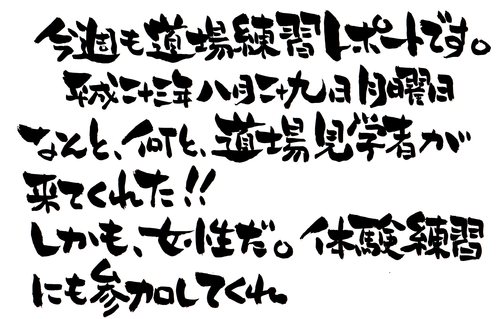 今週も道場練習レポートです。
平成二十三年八月二十九日月曜日
なんと、何と、道場見学者が
来てくれた!!
しかも、女性だ。体験練習
にも参加してくれ